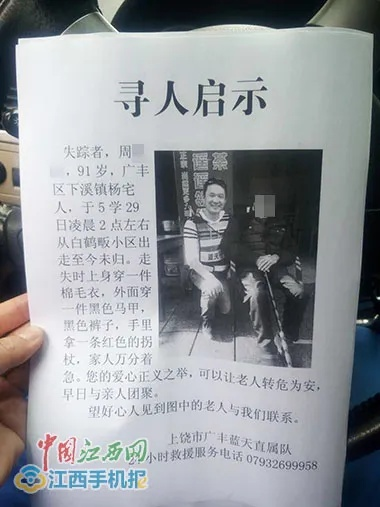 寻人启示
失踪者，周
，91岁，广丰
区下溪镇杨宅
人，于5学29
日凌晨2点左右
从白鹤畈小区出
走至今未归。走
失时上身穿一件
棉毛衣，外面穿
一件黑色马甲，
黑色裤子，手里
拿一条红色的拐
杖，家人万分着
急。您的爱心正义之举，可以让老人转危为安，
早日与亲人团聚。
望好心人见到图中的老人与我们联系。
上饶市广丰蓝天直属队
24小时救援服务电话 07932699958
中国江西网
江西手机报